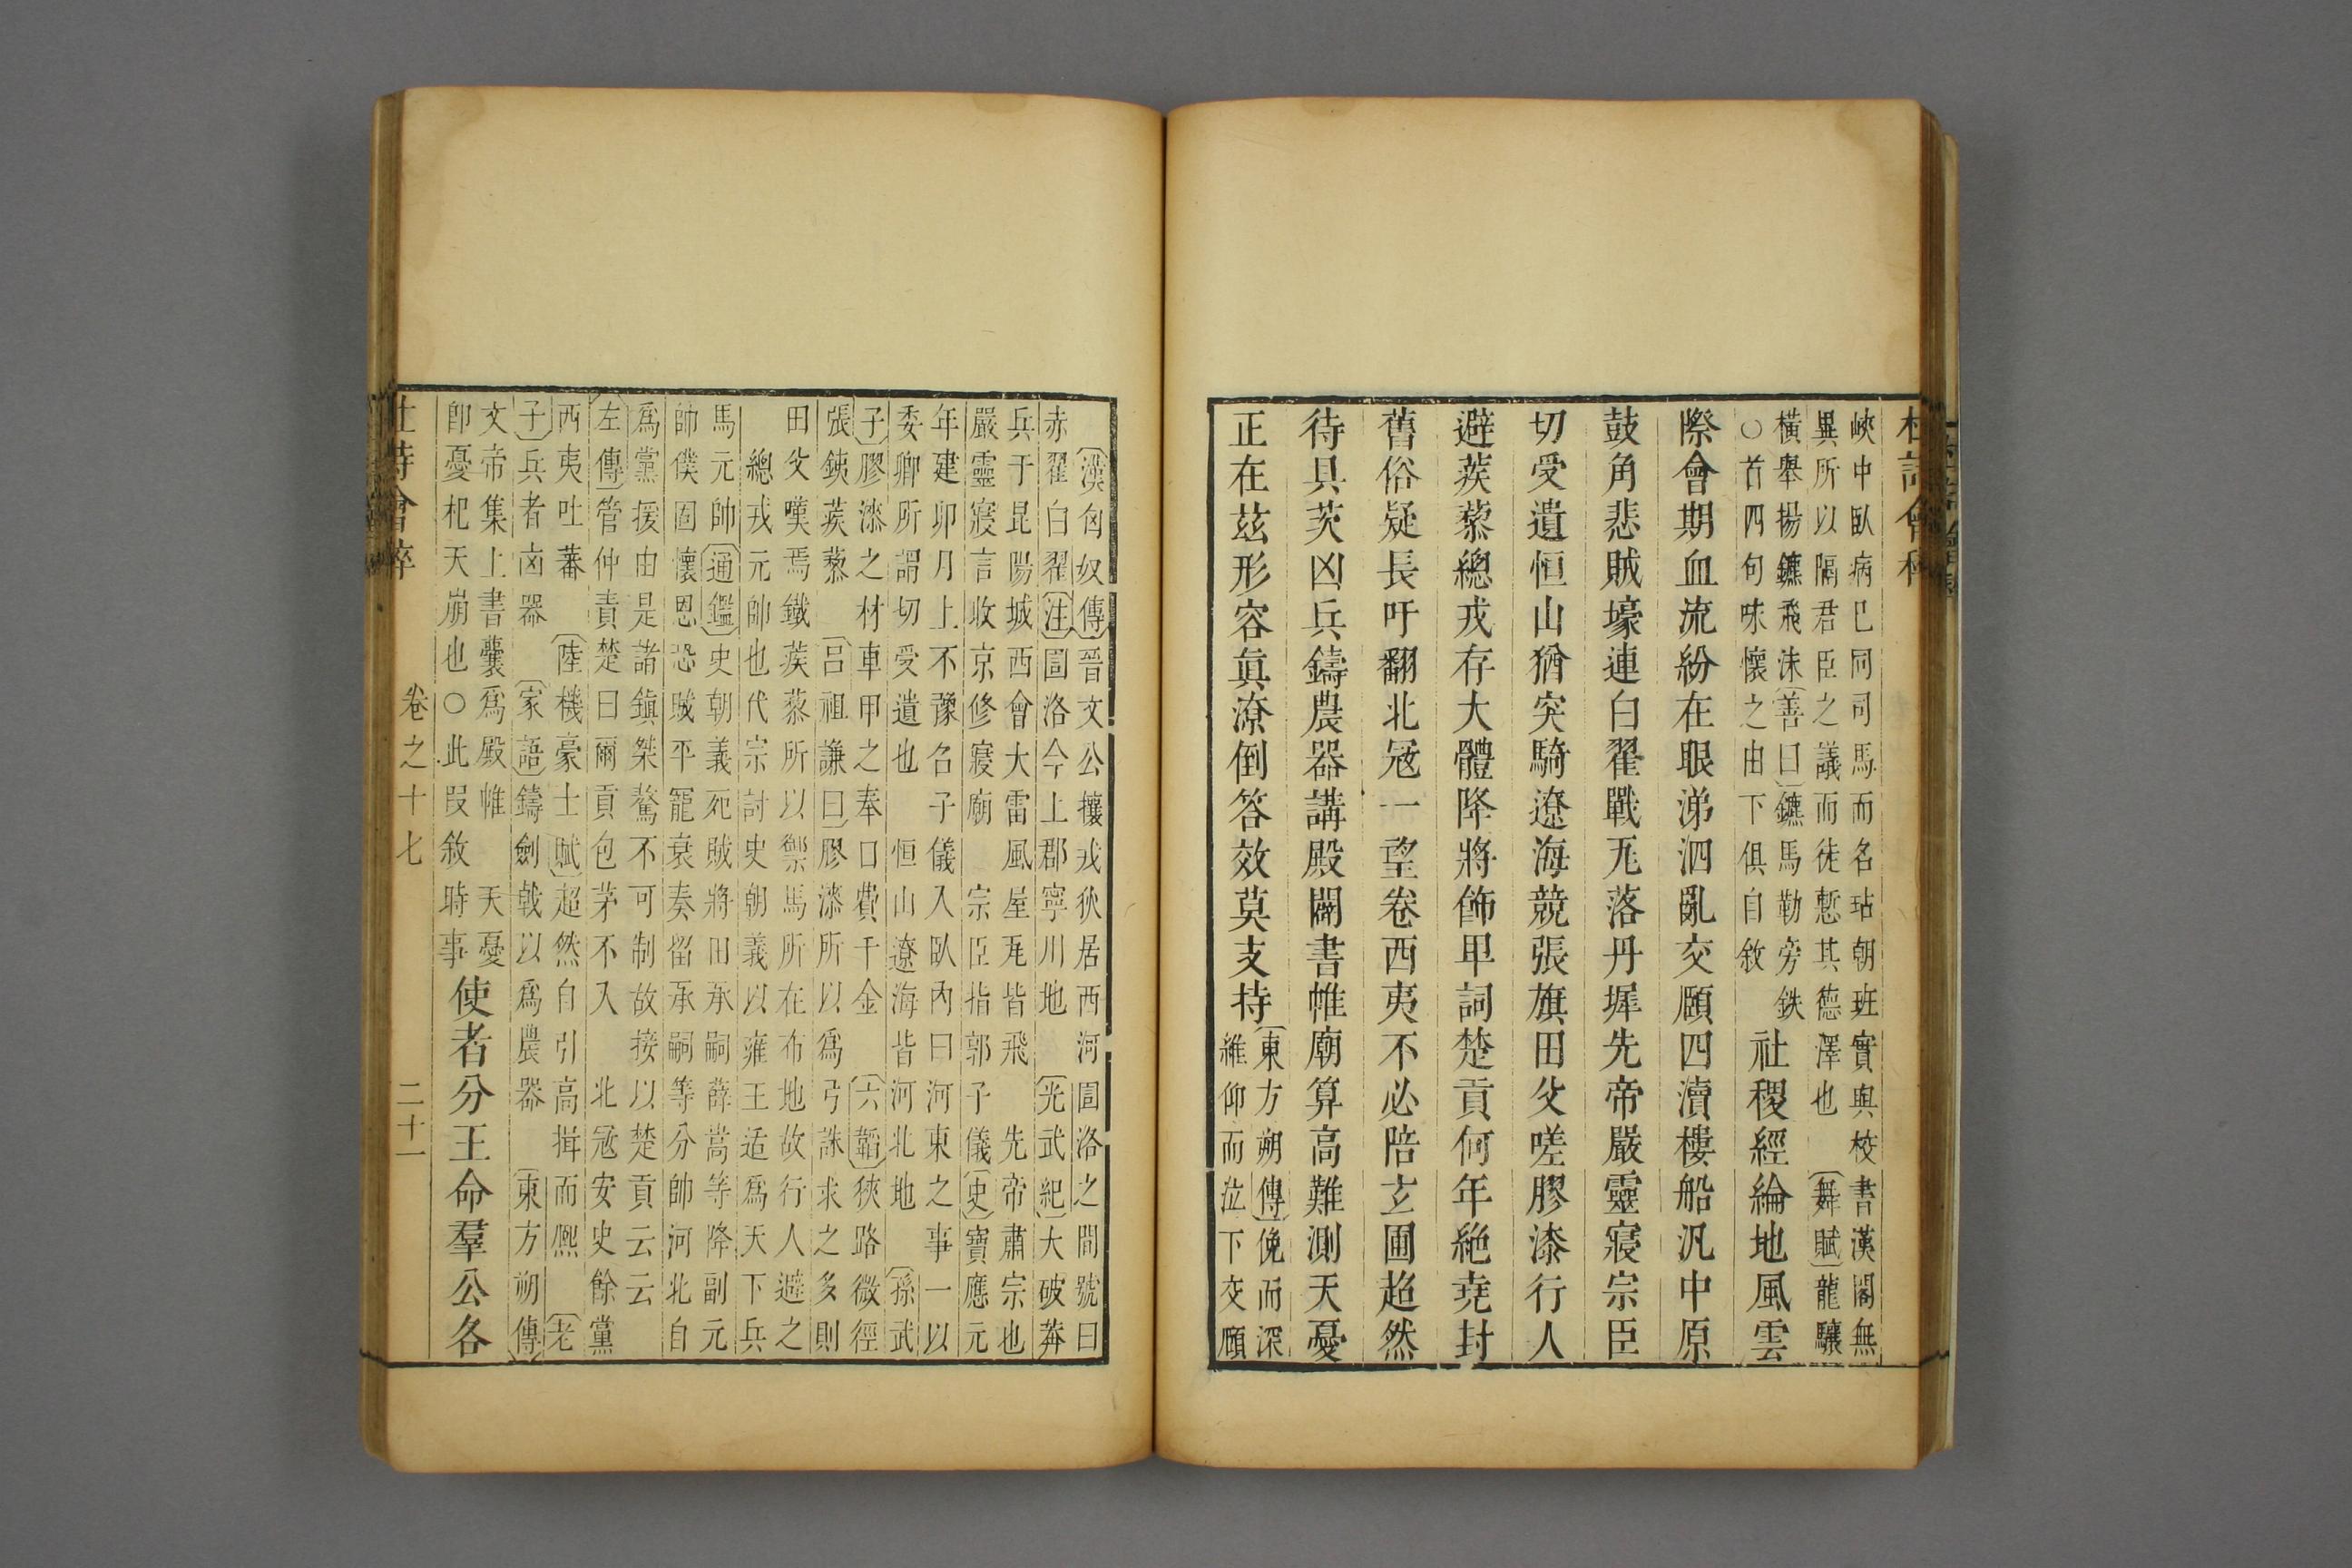 杜詩會稡
峽中臥病已同司馬而名玷朝班實與校書漢閣無
異所以隔君臣之議而徒慙其德澤也〔舞賦〕龍驤
橫舉揚鑣飛沫〔善曰〕鑣馬勒旁鉄
○首四句味懷之由下俱自敘
社稷經綸地風雲
際會期血流紛在眼涕泗亂交頤四瀆樓船汎中原
鼓角悲賊壕連白翟戰瓦落丹墀先帝嚴靈寢宗臣
切受遺恒山猶突騎遼海競張旗田父嗟膠漆行人
避蒺藜總戎存大體降將飾卑詞楚貢何年絶堯封
舊俗疑長吁翻北冦一望卷西夷不必陪玄圃超然
待具茨凶兵鑄農器講殿闢書帷廟算高難測天憂
正在茲形容眞潦倒答效莫支持
〔東方朔傳〕俛而深
維仰而泣下交頤
〔漢匈奴傳〕晉文公攘戎狄居西河圁洛之間號曰
赤翟白翟〔注〕圁洛今上郡寧川地〔光武紀〕大破莽
兵于昆陽城西會大雷風屋瓦皆飛先帝肅宗也
嚴靈寢言收京修寢廟宗臣指郭子儀〔史〕寶應元
年建卯月上不豫召子儀入臥內曰河東之事一以
委卿所謂切受遺也恒山遼海皆河北地〔孫武
子〕膠漆之材車甲之奉口費千金〔六韜〕狹路微徑
張鋏蒺藜〔呂祖謙曰〕膠漆所以爲弓誅求之多則
田父嘆焉鐵蒺藜所以禦馬所在布地故行人避之
總戎元帥也代宗討史朝義以雍王适爲天下兵
馬元帥〔通鑑〕史朝義死賊將田承嗣薛嵩等降副元
帥僕固懷恩恐賊平寵衰奏留承嗣等分帥河北自
爲黨援由是諸鎮桀驁不可制故接以楚貢云云
〔左傳〕管仲責楚曰爾貢包茅不入北冦安史餘黨
西夷吐蕃〔陸機豪士賦〕超然自引高揖而熈〔老
子〕兵者凶器〔家語〕鑄劍戟以爲農器〔東方朔傳〕
文帝集上書囊爲殿帷天憂
卽憂杞天崩也○此叚敘時事
使者分王命羣公各
杜詩會稡
卷之十七
二十一